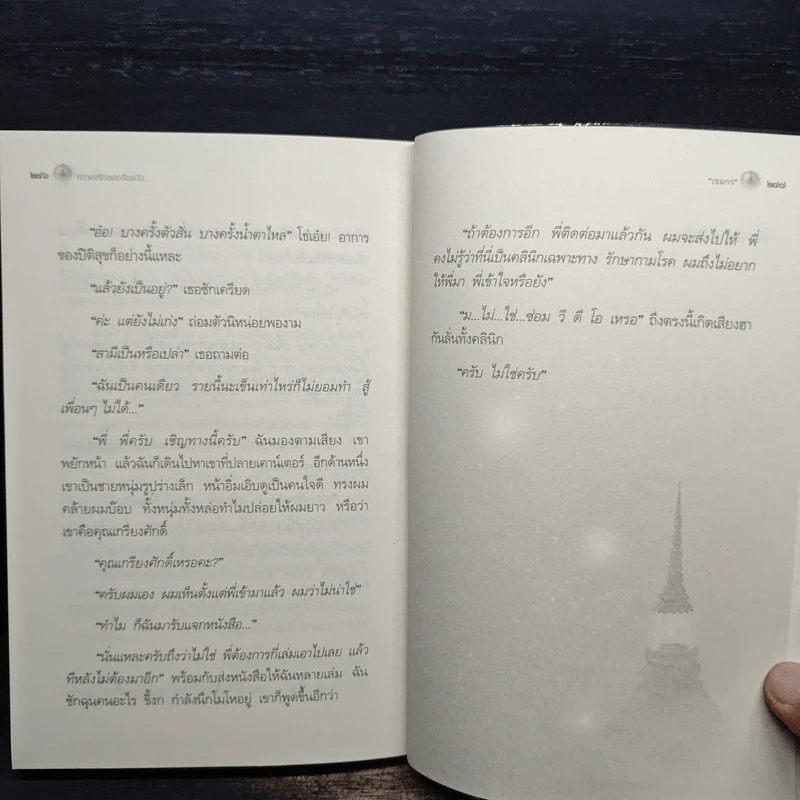 ๒๗๖ ความจริงของปัจจุบัน...
"อ๋อ! บางครั้งตัวสั่น บางครั้งน้ำตาไหล" โซ่เอ๋ย! อาการ
ของปีติสุขก็อย่างนี้แหละ
"แล้วยังเป็นอยู่?" เธอซักเครียด
"ค่ะ แต่ยังไม่เก่ง" ถ่อมตัวนิหน่อยพองาม
"สามีเป็นหรือเปล่า" เธอถามต่อ
"ฉันเป็นคนเดียว รายนี้นะเข็นเท่าไหร่ก็ไม่ยอมทำ สู้
เพื่อนๆ ไม่ได้..."
"พี่ พี่ครับ เชิญทางนี้ครับ" ฉันมองตามเสียง เขา
พยักหน้า แล้วฉันก็เดินไปหาเขาที่ปลายเคาน์เตอร์ อีกด้านหนึ่ง
เขาเป็นชายหนุ่มรูปร่างเล็ก หน้าอิ่มเอิบดูเป็นคนใจดี ทรงผม
คล้ายผมบ๊อบ ทั้งหนุ่มทั้งหล่อทำไมปล่อยให้ผมยาว หรือว่า
เขาคือคุณเกรียงศักดิ์
"คุณเกรียงศักดิ์เหรอคะ?"
"ครับผมเอง ผมเห็นตั้งแต่พี่เข้ามาแล้ว ผมว่าไม่น่าใช่"
"ทำไม ก็ฉันมารับแจกหนังสือ..."
"นั่นแหละครับถึงว่าไม่ใช่ พี่ต้องการกี่เล่มเอาไปเลย แล้ว
ทีหลังไม่ต้องมาอีก" พร้อมกับส่งหนังสือให้ฉันหลายเล่ม ฉัน
ชักฉุนคนอะไร ขี้งก กำลังนึกโมโหอยู่ เขาก็พูดขึ้นอีกว่า
"เขมกร" ๒๗๗
"ถ้าต้องการอีก พี่ติดต่อมาแล้วกัน ผมจะส่งไปให้ พี่
คงไม่รู้ว่าที่นี่เป็นคลินิกเฉพาะทาง รักษากามโรค ผมถึงไม่อยาก
ให้พี่มา พี่เข้าใจหรือยัง"
"ม...ไม่...ใช่...ซ่อม วี ดี โอ เหรอ" ถึงตรงนี้เกิดเสียงฮา
กันลั่นทั้งคลินิก
"ครับ ไม่ใช่ครับ"